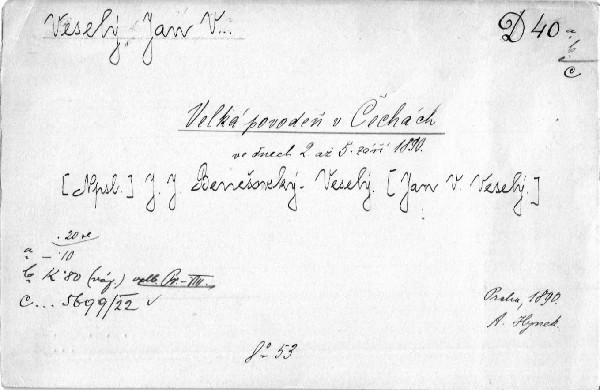 Veselý, Jan V...
D 40 a
b
c
Velká povodeň v Čechách
ve dnech 2 až 5. září 1890.
[Npsl.] J. J. Benešovský-Veselý. [Jan V. Veselý.]
a – 10
b K 80 (váz.)
c ... 5699/22 ✓
Praha, 1890.
A. Hynek.
8° 53